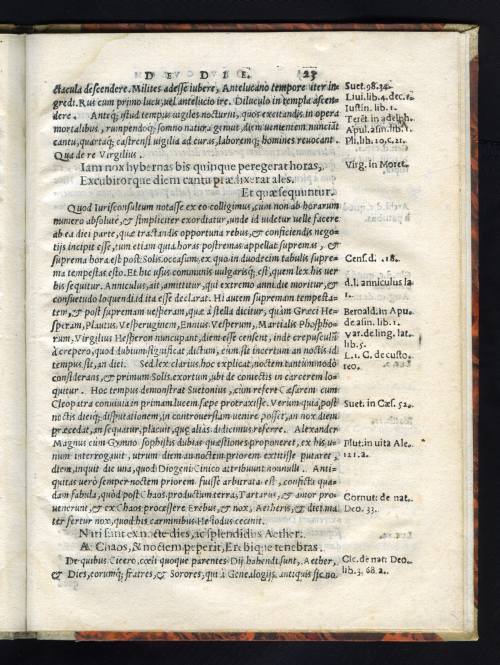 DE DIE. 23
ctacula descendere. Milites adesse iubere, Antelucano tempore iter in-
gredi. Rus cum primo lucu, uel antelucio ire. Diluculo in templa ascen-
dere. Anteq; istud tempus uigiles nocturni, quos excitandis in opera
mortalibus, rumpendoq; somno natura genuit, diem uenientem nunciāt
cantu, quartaq; castrensi uigilia ad curas, laboremq; homines reuocant
Qua de re Virgilius.
Iam nox hybernas bis quinque peregerat horas,
Excubitorque diem cantu prædixerat ales.
Et quæ sequuntur.
Quod Iurisconsultum notasse ex eo colligimus, cum non ab horarum
numero absolutè, & simpliciter exordiatur, unde id uidetur uelle facere
ab ea diei parte, quæ tractandis opportuna rebus, & conficiendis nego-
tijs incipit esse, tum etiam quia horas postremas appellat supremas, &
suprema hora est post Solis occasum, ex quo in duodecim tabulis supre-
ma tempestas esto. Et hic usus communis uulgarisq; est, quem lex his uer
bis sequitur. Anniculus, ait, amittitur, qui extremo anni die moritur, &
consuetudo loquendi id ita esse declarat. Hi autem supremam tempesta-
tem, & post supremam uesperam, quæ à stella dicitur, quàm Græci He-
speram, Plautus Vesperuginem, Ennius Vesperum, Martialis Phospho-
rum, Virgilius Hesperon nuncupant, diem esse censent, inde crepusculū
à crepero, quod dubium significat, dictum, cum sit incertum an noctis id
tempus sit, an diei. Sed lex clarius hoc explicat, noctem tantum modo
considerans, & primum Solis exortum, ubi de coniectis in carcerem lo-
quitur. Hoc tempus demonstrat Suetonius, cùm refere Cæsarem cum
Cleopatra conuiuia in primam lucem sæpe protraxisse. Verum quia post
noctis dieiq; disputationem, in controuersiam uenire posset, an nox diem
præcedat, an sequatur, placuit, quæ aliàs didicimus referre. Alexander
Magnus cùm Gymno sophistis dubias quæstiones proponeret, ex his, u-
num interrogauit, utrum diem an noctem priorem extitisse putaret,
diem, inquit die una, quod Diogeni Cinico attribuunt nonnulli. Anti-
quitas uerò semper noctem priorem fuisse arbitrata est, conficta qua-
dam fabula, quòd post Chaos productum terra, Tartarus, & amor pro-
uenerunt, & ex Chaos processere Erebus, & nox, Aetheris, & diei ma
ter fertur nox, quod his carminibus Hesiodus cecinit.
Nati sunt ex nocte dies, ac splendidus Aether.
At Chaos, & noctem peperit, Erebique tenebras.
De quibus Cicero, cœli quoque parentes Dij habendi sunt, Aether,
& Dies, eorumq; fratres, & Sorores, qui à Genealogijs antiquis sic no
Suet. 98. 34.
Liui. lib. 4. dec. 1.
Iustin. lib. 1.
Terēt in adelph.
Apul. asin. lib. 1.
Pli. lib. 10. c. 21.
Virg. in Moret.
Cens. d. 118.
d. l. anniculus la
1.
Beroald. in Apu.
de asin. lib. 1.
Var. de ling. lat.
lib. 5.
L. 1. C. de custo.
reo.
Suet. in Cæs. 52.
Plut. in uita Ale.
121. 2.
Cornut: de nat.
Deo. 33.
Cic. de nat: Deo.
lib. 3. 68. 2.